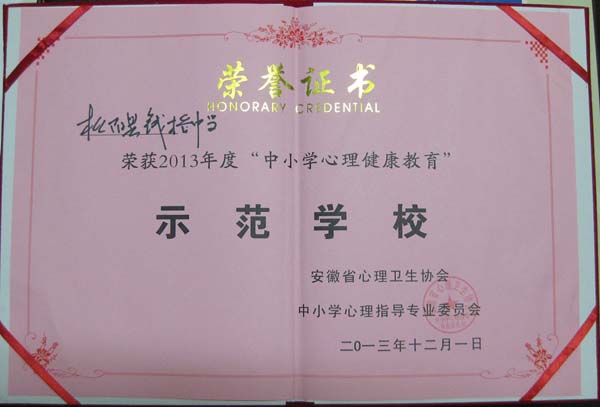 荣誉证书
HONORARY CREDENTIAL
枞阳县钱桥中学
荣获2013年度“中小学心理健康教育”
示范学校
安徽省心理卫生协会
中小学心理指导专业委员会
二O一三年十二月一日